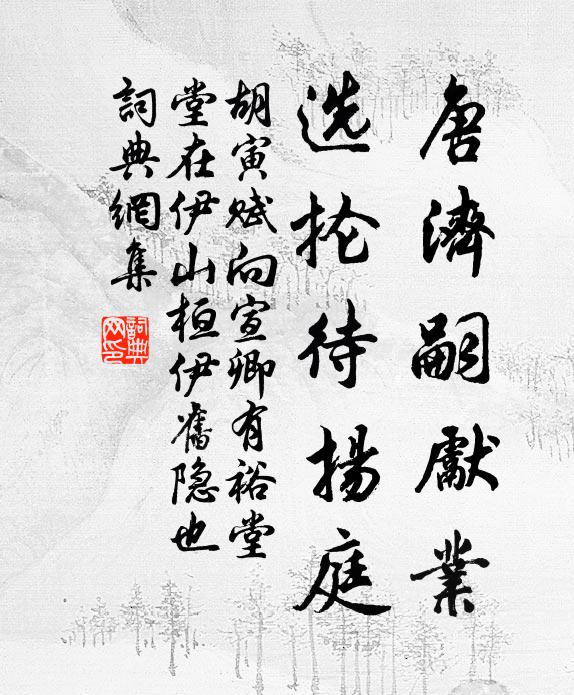 唐濟嗣獻業
选抡待揚庭
胡寅赋向宣卿有裕堂
堂在伊山桓伊舊隐也
詞典網集
詞典網印